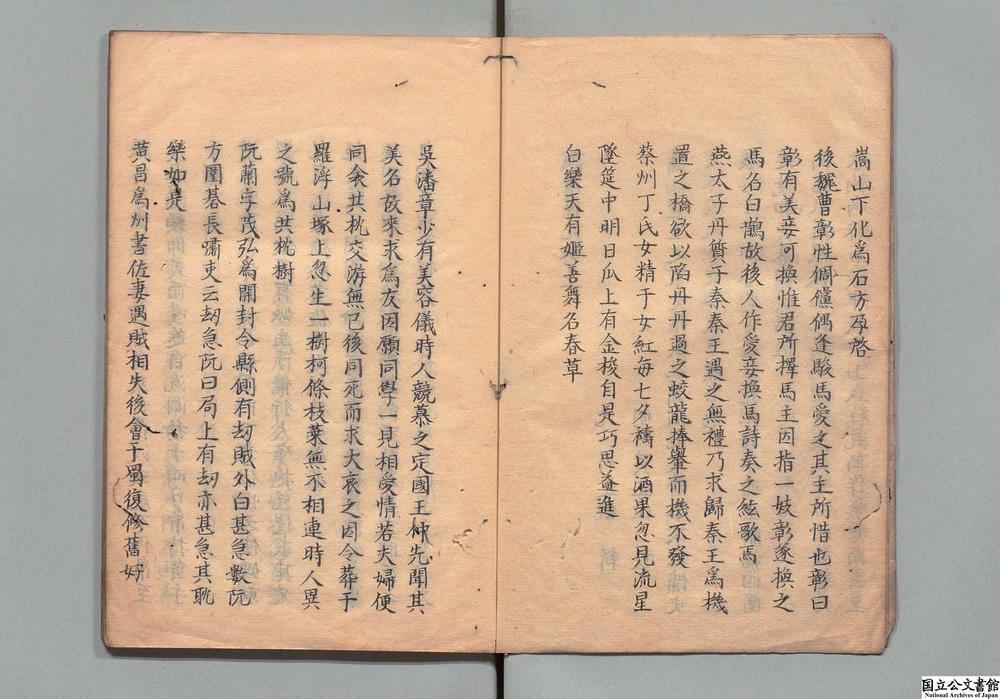 嵩山下化爲石方存啓
後魏曹彰性倜儻偶逢駿馬愛之其主所惜也彰曰
彰有美妾可換惟君所擇馬主因指一妓彰遂換之
馬名白鵲故後人作愛妾換馬詩奏之絃歌焉
燕太子丹質于秦秦王遇之無禮乃求歸秦王爲機
置之橋欲以陷丹丹過之蛟龍捧轝而機不發
蔡州丁氏女精于女紅每七夕禱以酒果忽見流星
墜筵中明日瓜上有金梭自是巧思益進
白樂天有姬善舞名春草
吳潘章少有美容儀時人競慕之定國王仲先聞其
美名故來求爲友因願同學一見相愛情若夫婦便
同衾共枕交游無已後同死而求大哀之因令葬于
羅浮山塚上忽生一樹柯條枝葉無不相連時人異
之號爲共枕樹
阮蕑字茂弘爲開封令縣側有刼賊外白甚急數阮
方圍碁長嘯吏云刼急阮曰局上有刼亦甚急其耽
樂如是
黄昌爲州書佐妻遇賊相失後會于蜀復修舊好
国立公文書館
National Archives of Japan